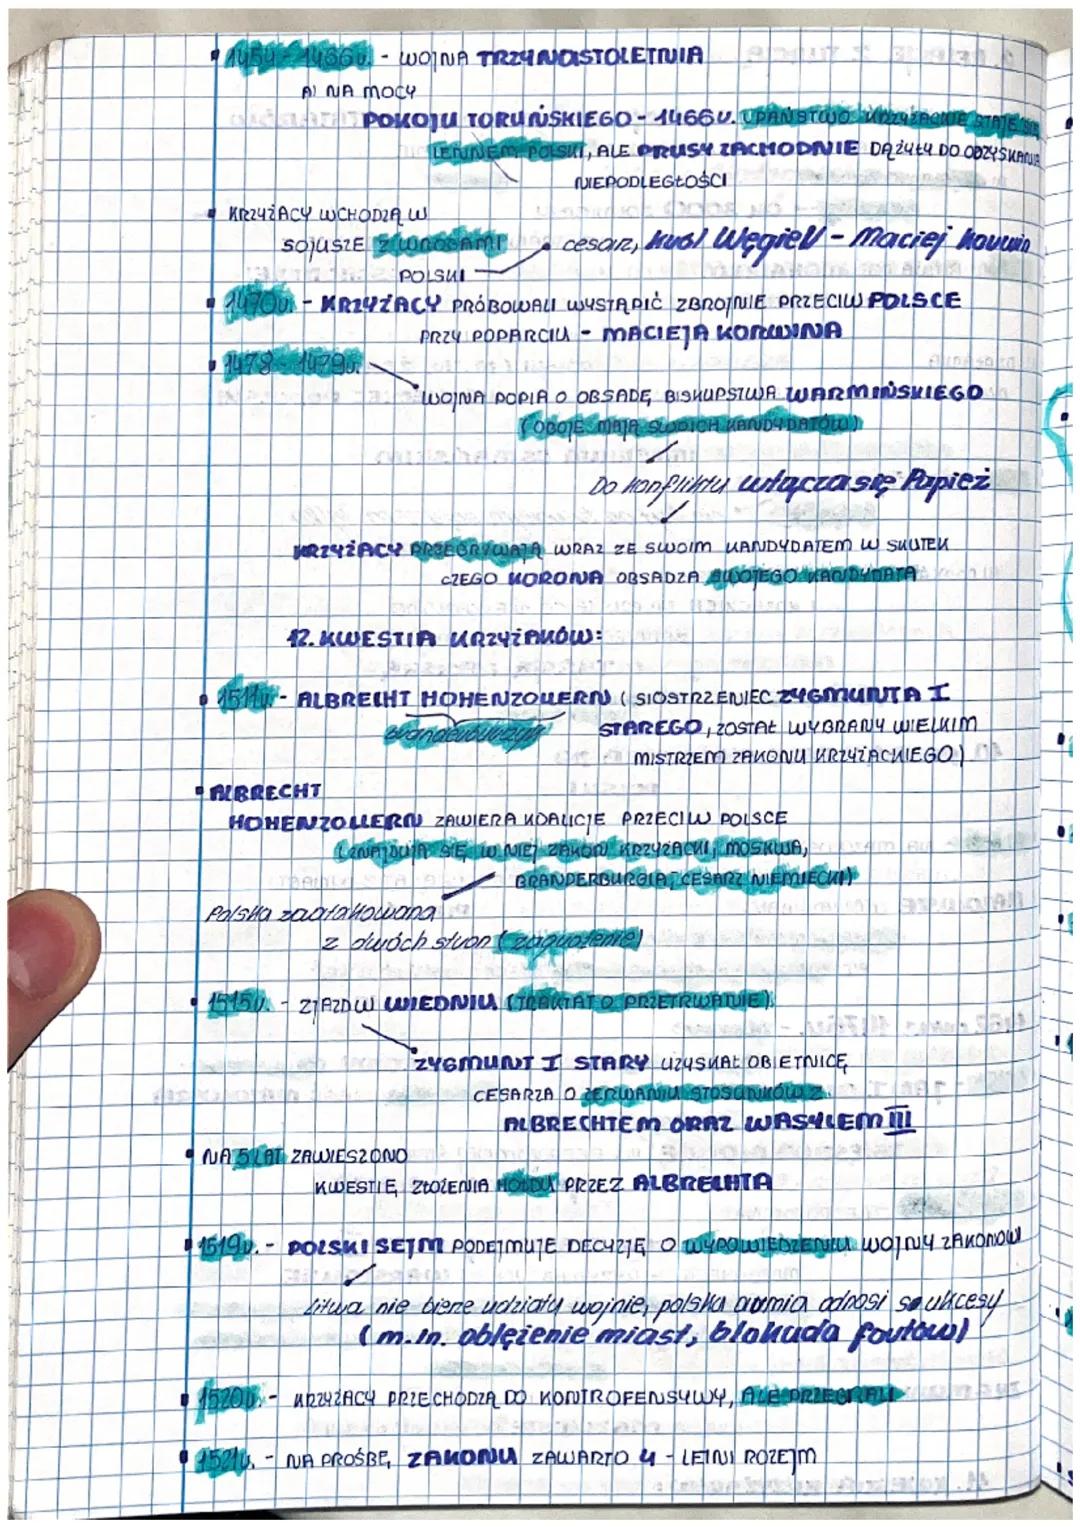 1454-1466r. - WOJNA TRZYNASTOLETNIA
A) NA MOCY
POKOJU TORUŃSKIEGO - 1466r. PAŃSTWO KRZYŻACKIE STAJE SIĘ
LENNEM POLSKI, ALE PRUSY ZACHODNIE DĄŻYŁY DO ODZYSKANIA
NIEPODLEGŁOŚCI
KRZYŻACY WCHODZĄ W
SOJUSZE Z WROGAMI
cesarz, Król Węgier - Maciej Korwin
POLSKI
1470r. - KRZYŻACY PRÓBOWALI WYSTĄPIĆ ZBROJNIE PRZECIW POLSCE
PRZY POPARCIU - MACIEJA KORWINA
1478-1479r.
WOJNA POPIA O OBSADĘ BISKUPSTWA WARMIŃSKIEGO
(OBOJE MAJĄ SWOICH KANDYDATÓW)
Do konfliktu włącza się Papież
KRZYŻACY PRZEGRYWAJĄ WRAZ ZE SWOIM KANDYDATEM W SKUTEK
CZEGO KORONA OBSADZA SWOJEGO KANDYDATA
12. KWESTIA KRZYŻAKÓW:
1511r. - ALBRECHT HOHENZOLLERN (SIOSTRZENIEC ZYGMUNTA I
STAREGO, ZOSTAŁ WYBRANY WIELKIM
MISTRZEM ZAKONU KRZYŻACKIEGO)
ALBRECHT
HOHENZOLLERN ZAWIERA KOALICJE PRZECIW POLSCE
(ZNAJDUJA SIĘ W NIEJ ZAKON KRZYŻACKI, MOSKWA,
BRANDERBURGIA, CESARZ NIEMIECKI)
Polska zaatakowana
z dwóch stron (zagrożenie)
1515r. - ZJAZD W WIEDNIU (TRAKTAT O PRZETRWANIE)
ZYGMUNT I STARY UZYSKAŁ OBIETNICĘ
CESARZA O ZERWANIU STOSUNKÓW Z
ALBRECHTEM ORAZ WASYLEM III
NA 5 LAT ZAWIESZONO
KWESTIĘ ZŁOŻENIA HOŁDU PRZEZ ALBRECHTA
1519r. - POLSKI SEJM PODEJMUJE DECYZJĘ O WYPOWIEDZENIU WOJNY ZAKONOWI
Litwa nie bierze udziały wojnie, polska armia odnosi sukcesy
(m.in. oblężenie miast, blokada fortów)
1520r. - KRZYŻACY PRZECHODZĄ DO KONTROFENSYWY, ALE PRZEGRALI
1521r. - NA PROŚBĘ ZAKONU ZAWARTO 4 - LETNI ROZEJM